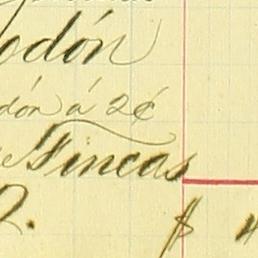 odón
dón á 2¢
Fincas
$